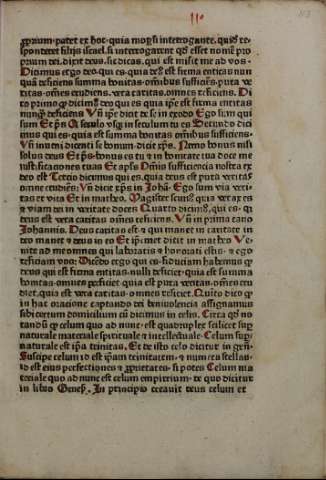 proprium patet ex hoc quia moysi interrogante quid responderet filijs israel si interrogarent qd esset nomē proprium dei dixit deus sic dicas qui est misit me ad vos
Dicimus ergo deo qui es quia deus est firma entitas nunquā deficiens summa bonitas omnibus sufficiēs pura veritas omēs erudiens vera caritas omnes reficiens Dico primo qp dicimus deo qui es quia ipse est firma entitas
nunquā deficiens Vn ipse dicit de se in exodo Ego sum qui
sum Et ps A seculo vsqz in seculum tu es Secundo dicimus qui es quia est summa bonitas omnibus sufficiens
solus deus Et ps bonus es tu et in bonitate tua doce me
iustificationes tuas Et apls Omīs sufficiencia nostra ex
deo est Tercio dicimus qui es quia deus est pura veritas
omnes erudiens Vn dicit xps in Joha Ego sum via veritas et vita Et in matheo Magister scimus quia verax es
et viam dei in veritate doces Quarto dicimus qui es quia
deus est vera caritas omēs reficiens Vn in prima canō
Johannis Deus caritas est et qui manet in caritate in
deo manet et deus in eo Et ipse met dicit in matheo Venite ad me omnes qui laboratis et honorati estis et ego
reficiam vos
deus qui est firma entitas nulli deficiet quia est summa
bonitas omnes perficiet quia est pura veritas omēs erudiet quia est vera caritas omnes reficiet Quīto dico qp
in hac oratione captando dei beniuolencia assignamus
sibi certum domicilium cū dicimus in celis Circa qd notandū qp celum quo ad nunc est quadruplex scilicet supernaturale materiale spirituale et intellectuale Celum supernaturale est ipsa trinitas Et de isto celo dicitur in gen
Suscipe celum id est ipsam trinitatem et numera stellas
id est eius perfectiones et proprietates si potes Celum materiale quo ad nunc est celum empireum de quo dicitur
in libro Genes In principio creauit deus celum et